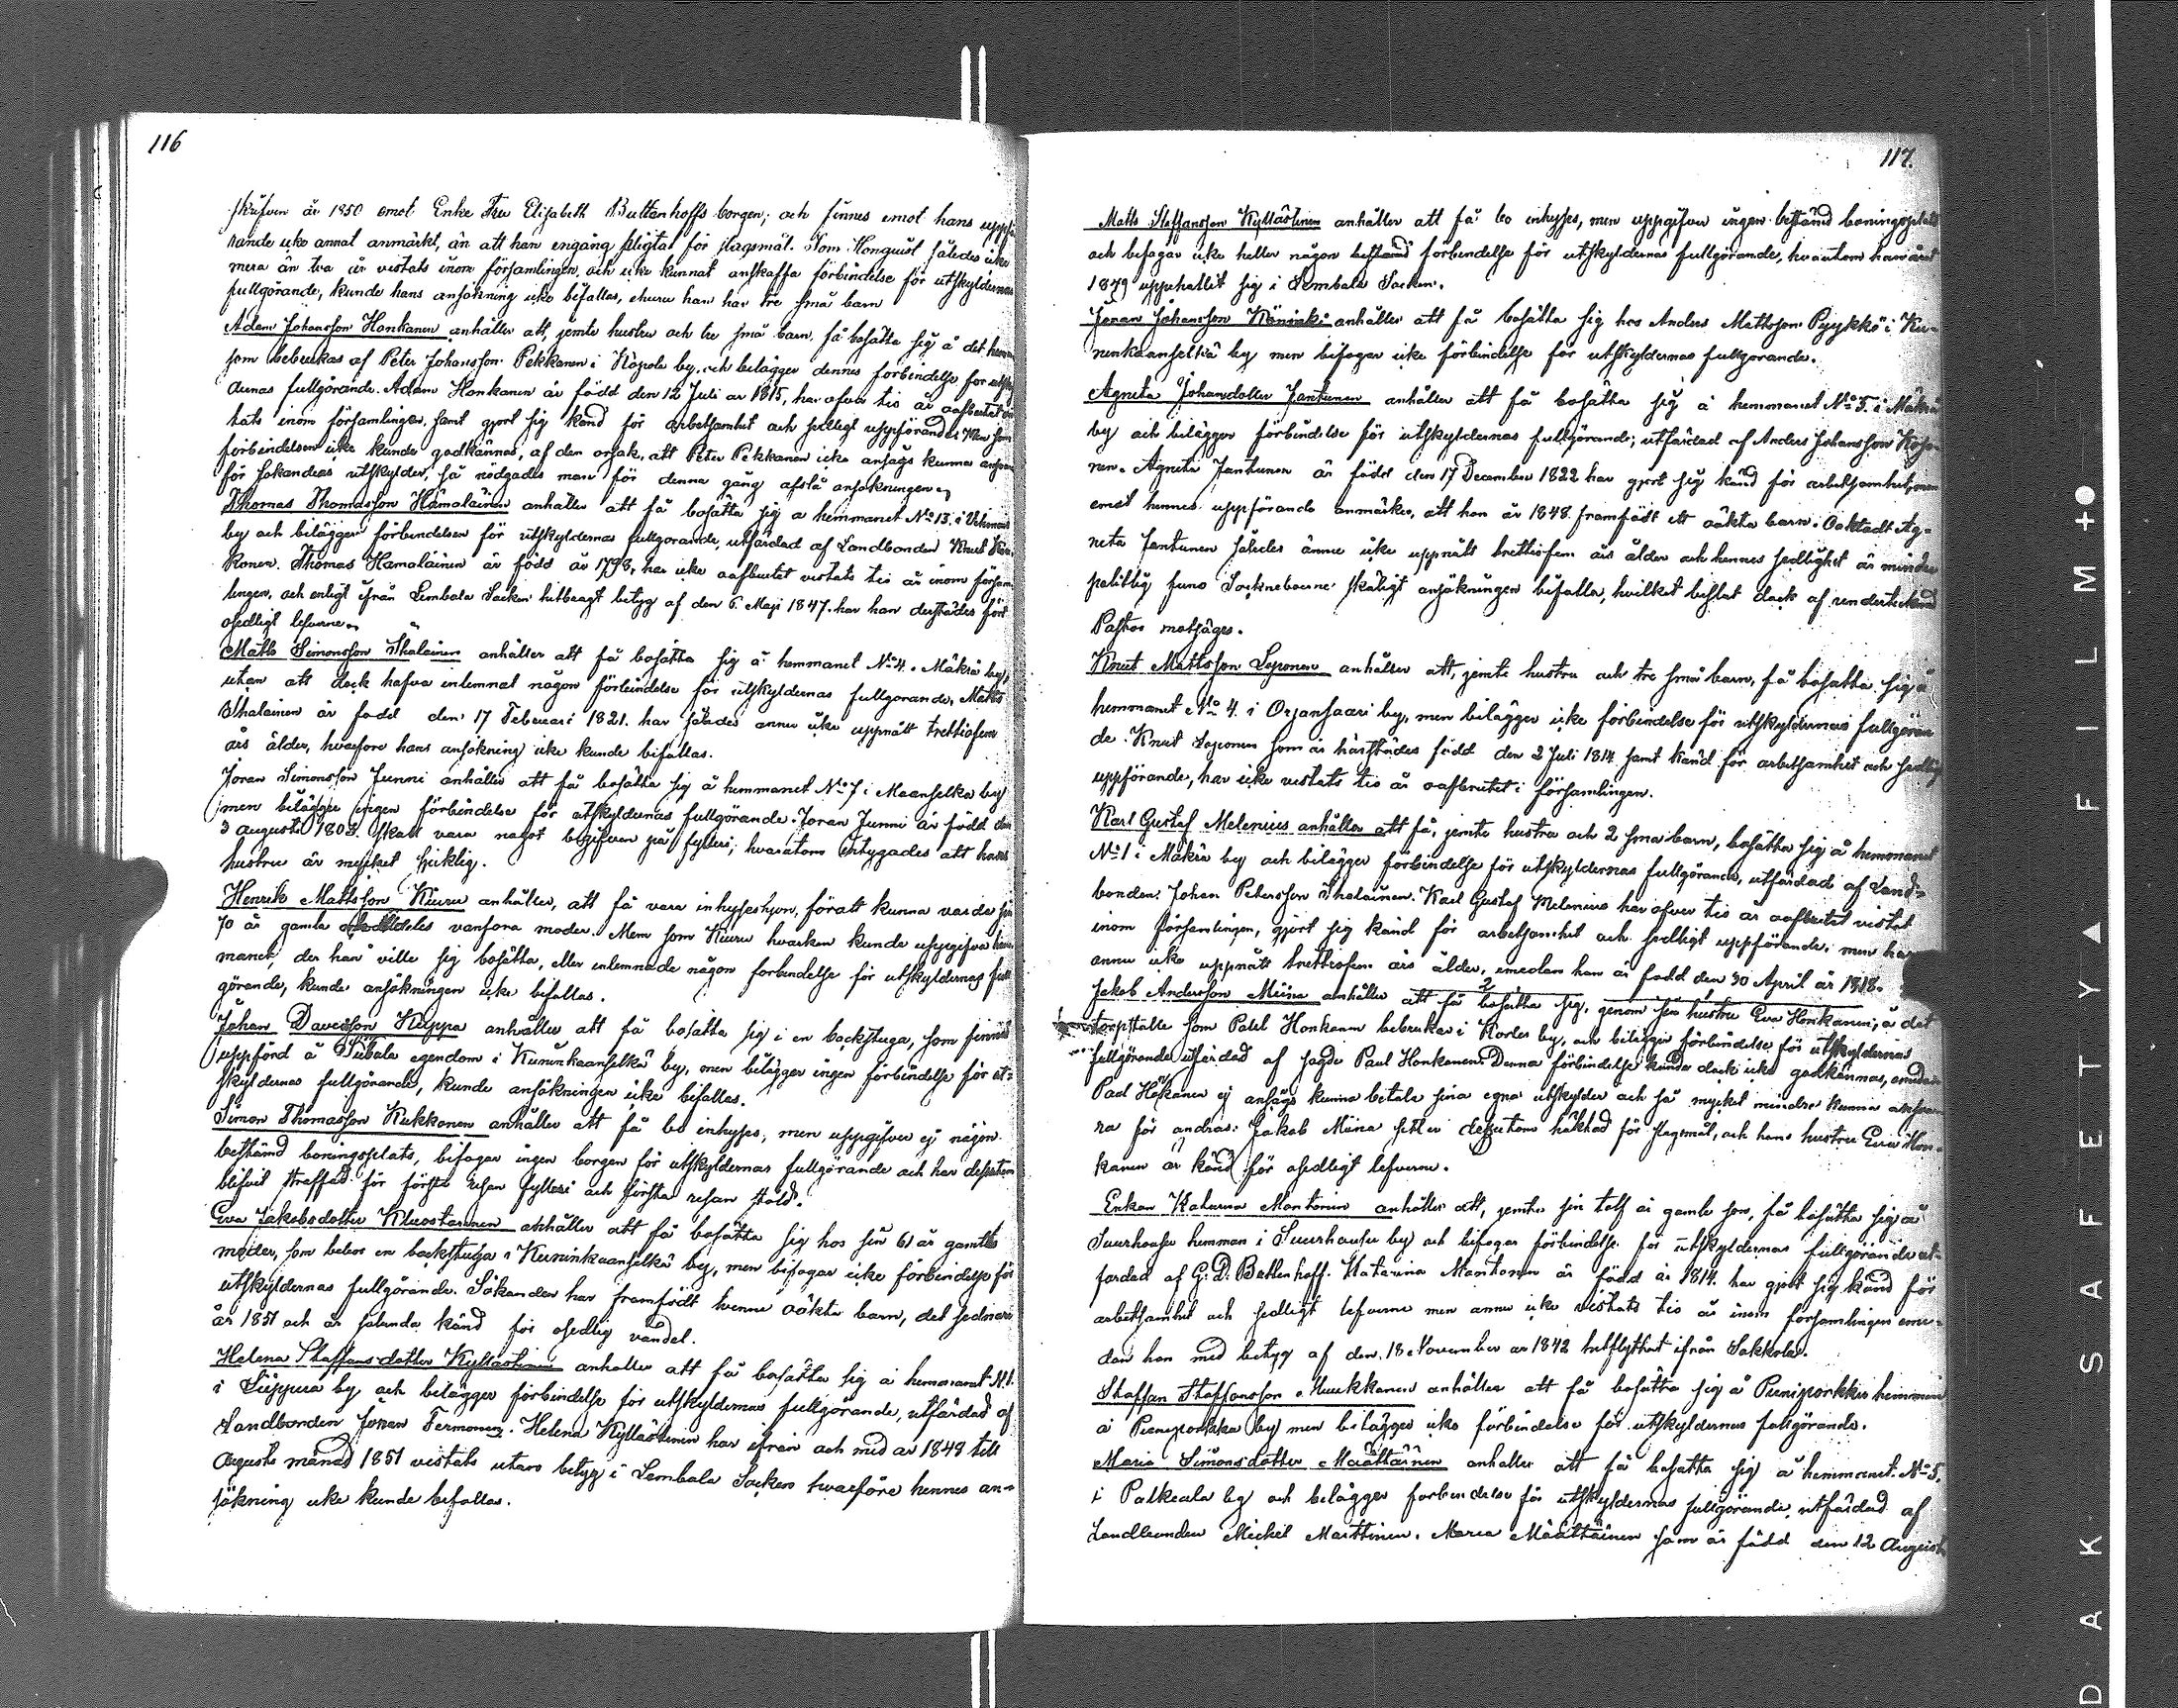 116
skrifven år 1850 emot Enke Fru Elisabeth Buttenhoffs borgen; och finnes emot hans uppfö-
rande icke annat anmärkt, än att han engång pligtat för slagsmål. Som Honquist således icke
mera än tva år vistats inom församlingen, och icke kunnat anskaffa förbindelse för utskyldernas
fullgörande, kunde hans ansökning icke bifallas, ehuru han har tre små barn
Adam Johansson Honkanen anhåller att, jemte hustru och tre små barn, få bosätta sig å det hem
som bebrukas af Peter Johansson Pekkanen i Kopola by, och bilägger dennes förbindelse for utskyl
dernas fullgörande. Adam Honkanen är född den 12 Juli ar 1815, har öfver tio år oafbrutet vis
tats inom församlingen, samt gjort sig känd för arbetsamhet och sedligt uppförande. Men som
förbindelsen icke kunde godkännas, af den orsak, att Peter Pekkanen icke ansågs kunna ansvara
för sökandens utskylder, så nödgades man för denna gång afslå ansökningen
Thomas Thomasson Hämäläinen anhåller att få bosätta sig a hemmanet No 13. i
by och bilägger förbindelsen för utskyldernas fullgörande, utfärdad af Landbonden Knut
konen. Thomas Hämäläinen är född år 1798, har icke oafbrutet vistats tio år inom försam
lingen, och enligt ifrån Lembala Socken hitbragt betyg af den 6. Maji 1847. har han derstädes fört
osedligt lefverne
Matts Simonsson Ihalainen anhåller att få bosätta sig å hemmanet No 4. i Mäkrä by,
utan att dock hafva inlemnat någon förbindelse för utskyldernas fullgörande, Matts
Ihalainen är född den 17 Februari 1821. har således ännu icke uppnått trettiofem
års ålder, hvarfore hans ansökning icke kunde bifallas.
Joran Simonsson Junni anhåller att få bosätta sig å hemmanet No 7 i Maanselkä by
men bilägger ingen förbindelse för utskyldernas fullgörande. Joran Junni är född den
3 augusti 1803. skall vara något begifven på fylleri; hvarutom intygades att hans
hustru är mycket sjuklig.
Henrik Mattsson Kiuru anhåller, att få vara inhyseshjon, föratt kunna vårda sin
70 år gamla aldeles vanfora moder. Men som Kiuru hvarken kunde uppgifva hem
manet, der han ville sig bosätta, eller inlemnade någon förbindelse för utskyldernas full
görande, kunde ansökningen icke bifallas.
Johan Davidsson Kuppa anhåller att få bosätta sig i en backstuga, som finnes
uppförd å Siibala egendom i Kuninkaanselkä by, men bilägger ingen förbindelse för ut-
skyldernas fullgörande, kunde ansökningen icke bifallas.
Simon Thomasson Kukkonen anhåller att få bo inhyses, men uppgifver ej någon
bestämd boningsplats, bifogar ingen borgen för utskyldernas fullgörande och har dessutom
blifvit straffad för första resan fylleri och första resan stöld.
Eva Jakobsdotter Kluostarinen anhåller att få bosätta sig hos sin 61 år gamla
moder, som bebor en backstuga i Kuninkaanselkä by, men bifogar icke förbindelse för
utskyldernas fullgörande. Sökanden har framfödt tvenne oäkta barn, det sednare
år 1851 och är således känd för osedlig vandel.
Helena Staffansdotter Kyllästinen anhåller att få bosätta sig å hemmanet N. 1.
i Suppua by och bilägger förbindelse för utskyldernas fullgörande, utfärdad af
Landbonden Jöran Termonen. Helena Kyllästinen har ifrån och med ar 1848 till
Augusti månad 1851 vistats utan betyg i Lembala Socken hvarföre hennes an-
sökning icke kunde bifallas.
117.
Matts Steffansson Kyllästinen anhåller att få bo inhyses, men uppgifver ingen bestämd boningsplats
och bifogar icke heller någon bestämd förbindelse för utskyldernas fullgörande, hvarutom han
1849 uppehallit sig i Lembala Socken.
Jöran Johansson Köninki anhåller att få bosätta sig hos Anders Mattsson Pyykkö i Ku-
ninkaanselkä by men bifogar icke förbindelse för utskyldernas fullgörande.
Agneta Johansdotter Jantunen anhåller att få bosätta sig å hemmanet No 5. i Mäkrä
by och bilägger förbindelse för utskyldernas fullgörande; utfärdad af Anders Johansson
nen. Agneta Jantunen är född den 17 December 1822 har gjort sig känd för arbetsamhet, men
emot hennes uppförande anmärkes, att hon år 1848 framfödt ett oäkta barn. Oaktadt Ag-
neta Jantunen således ännu icke uppnått trettiofem års ålder och hennes sedlighet är mindre
pålitlig funno Socknebornne skäligt ansökningen bifalla, hvilket beslut dock af undertecknad
Pastor motsäges.
Knut Mattsson Loponen anhåller att, jemte hustru och tre små barn, få bosatta sig å
hemmanet No 4. i Orjansaari by, men bilägger icke förbindelse för utskyldernas fullgöran
de. Knut Loponen som är härstädes född den 2 Juli 1814 samt känd för arbetsamhet och sedligt
uppförande, har icke vistats tio år oafbrutet i församlingen.
Karl Gustaf Melenius anhåller att få, jemte hustru och 2 sma barn, bosätta sig å hemmanet
No 1 i Mäkrä by och bilägger förbindelse för utskyldernas fullgörande, utfärdad af Land-
bonden Johan Petersson Ihalainen. Karl Gustaf Melenius har öfver tio år oafbrutet vistat
inom församlingen, gjort sig känd för arbetsamhet och sedligt uppförande; men har
annu icke uppnått trettiofem års ålder, emedan han är född den 30 April år 1818.
Jakob Andersson Miina anhåller att få bosätta sig, genom sin hustru Eva Honkanen, å det
torpställe som Paul Honkanen bebrukar i Korles by, och bilägger förbindelse för utskyldernas
fullgörande utfärdad af sagde Paul Honkanen. Denna förbindelse kunde dock icke godkännas, emedan
Paul Hokanen ej ansågs kunna betala sina egna utskylder och så mycket mindre kunna ansva
ra för andras. Jakob Miina sitter dessutom häktad för slagsmål, och hans hustru Eva Hon-
kanen är känd för osedligt lefverne.
Enkan Katarina Mantonen anhåller att, jemte sin tolf år gamle son, få bosätta sig å
Suurhousu hemman i Suurhousu by och bifogar förbindelse for utskyldernas fullgörande ut-
fardad af G. D. Buttenhoff. Katarina Mantonen är född år 1814. har gjort sig känd för
arbetsamhet och sedligt lefverne men annu icke vistats tio år inom forsamlingen eme-
dan hon med betyg af den 18 November ar 1842 hitflyttat ifrån Sakkola.
Staffan Staffansson Huukkanen anhåller att få bosätta sig å Pieniporkku hemman
å Pieniporkku by men bilägger icke förbindelse för utskyldernas fullgörande.
Maria Simonsdotter Määttäinen anhåller att få bosatta sig å hemmanet No 5.
i Palkeala by och bilägger förbindelse för utskyldernas fullgörande, utfärdad af
Landbonden Michel Marttinen. Maria Määttäinen som är född den 12 Augusti
D A K S A F E T Y F I L M